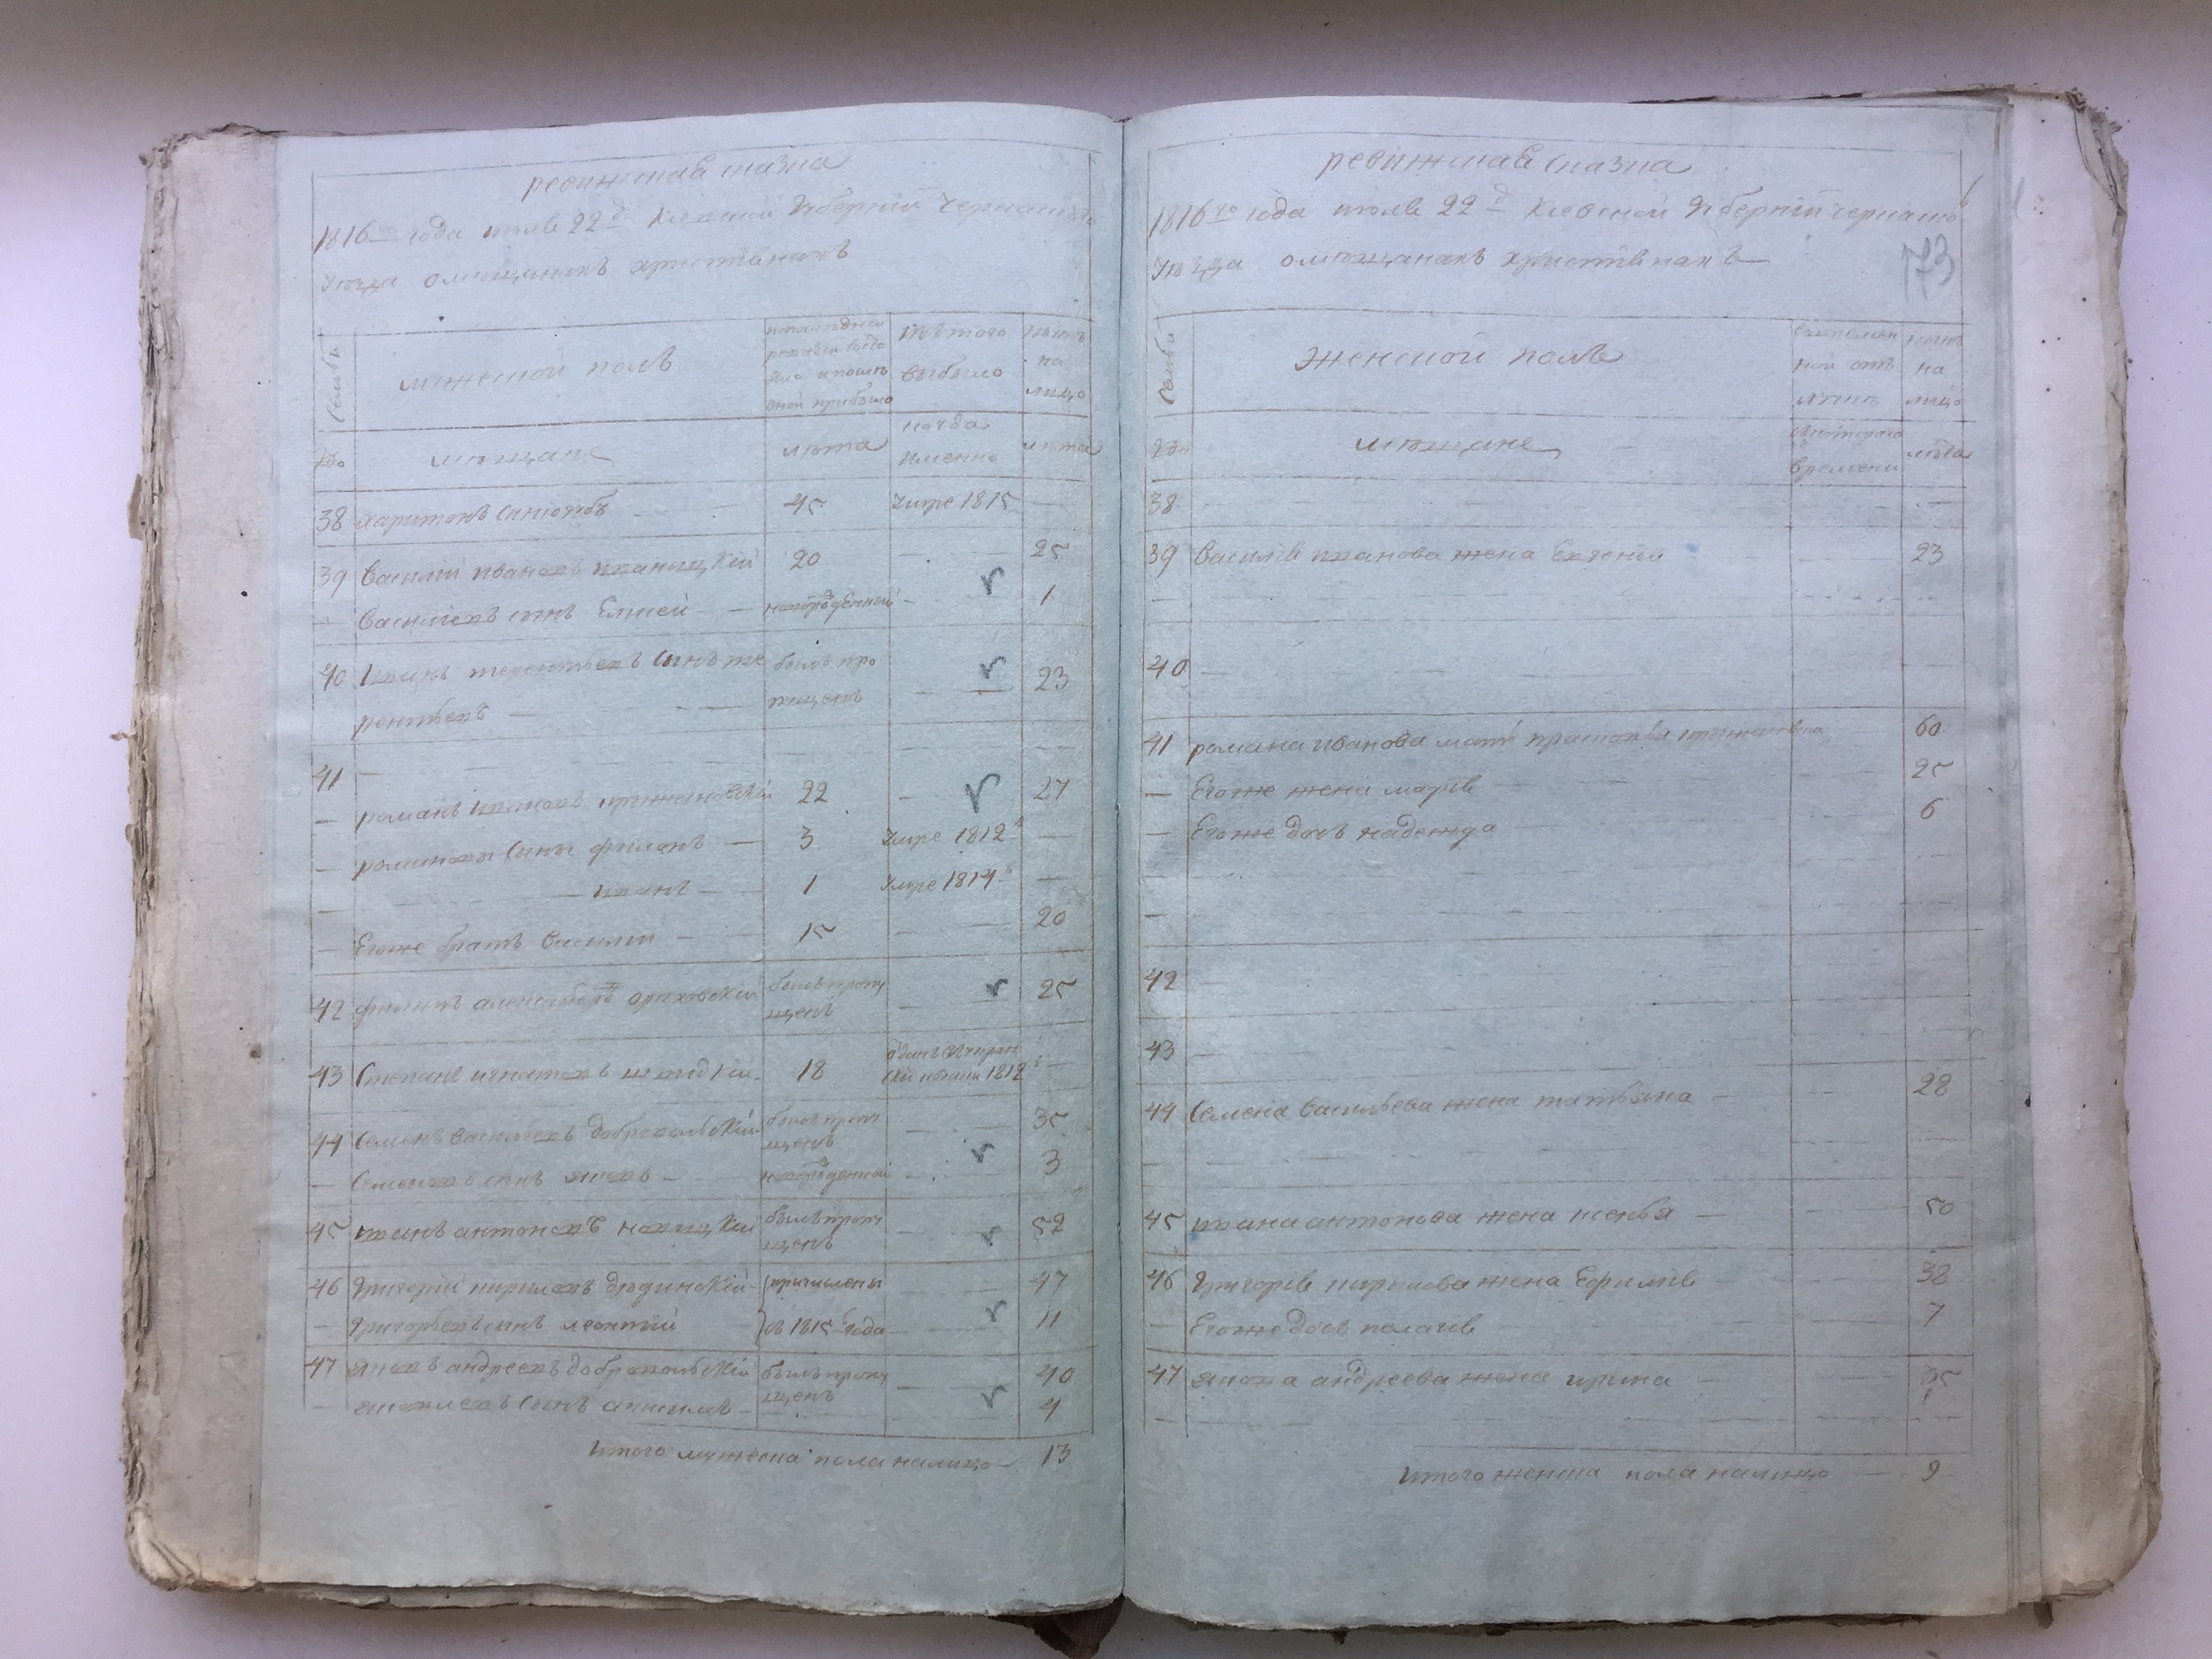 ревижская сказка
1816го года июля 22д Киевской Губернии Черкаского
Уезда о мещанахъ християнахъ
Семьи
мужеской полъ
по последней
ревизии состо
яло и после
оной прибыло
изъ того
выбыло
ныне
на
лицо
№
мещане
лета
когда
именно
лета
38 Харитонъ 45 Умре 1815 —
39 Василий Ивановъ Иваницкий 20 — 25
— Васильевъ сынъ Елисей — новорожденный — 1
40 Иванъ терентьевъ сынъ те былъ про — 23
рентьевъ — пущенъ
41 — — —
— романъ Ивановъ кржижановский 22 — 27
— романовы сыны филипъ — 3 Умре 1812 —
— — иванъ — 1 Умре 1814 —
— Егоже братъ Василий — 15 — 20
42 филипъ ореховский былъ пропу — 25
щенъ
43 Степанъ игнатовъ 18 отданъ
1812 —
44 Семенъ Васильевъ добровольский былъ пропу — 35
щенъ
— Семеновъ сынъ яковъ — новорожденный — 3
45 иванъ антоновъ новицкий былъ пропу — 52
щенъ
46 Григорий кириловъ дюдинский причислены — 47
— Григорьевъ сынъ леонтий съ 1815 года — 11
47 яковъ андреевъ добровольский былъ пропу — 40
щенъ
— яковлевъ сынъ — 4
Итого мужеска пола налицо — 13
ревижская сказка
1816го года июля 22д Киевской Губернии черкаского
Уезда о мещанахъ християнахъ
173
Семьи
Женской полъ
во времен
ной отъ
лучке
ныне
на
лицо
№
мещане
съ которого
времени
лета
38 — —
39 Василия иванова жена Евгения — 23
—
40 —
41 романа иванова мать 60
— Егоже жена мария 25
— Егоже дочь надежда 6
—
—
42 —
43 —
44 Семена Васильева жена татьяна — 28
—
45 ивана антонова жена — 50
46 Григория кирилова жена Ефимия 38
— Егоже дочь пелагия 7
47 якова андреева жена ирина — 35
—
Итого женска пола налицо — 9